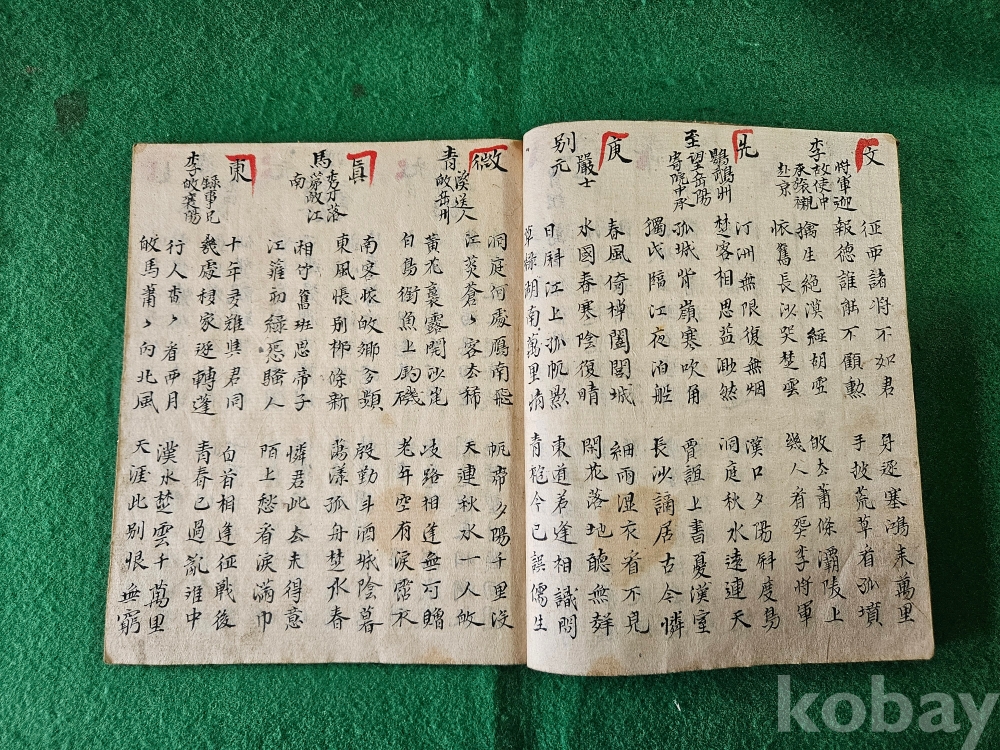 文
李將軍迎故使中丞旅櫬赴京
征西諸將不如君
報德誰能不顧勳
身逐塞鴻來萬里
手披荒草看孤墳
擒生絕漠經胡雪
懷舊長沙哭楚雲
敀去蕭條灞陵上
幾人看葬李將軍
先
至鸚鵡洲望岳陽寄院中丞
汀洲無限復無烟
楚客相思益渺然
漢口夕陽斜度鳥
洞庭秋水遠連天
孤城背嶺寒吹角
獨戍臨江夜泊船
賈誼上書憂漢室
長沙謫居古今憐
庚
別嚴士元
春風倚棹闔閭城
水國春寒陰復晴
細雨湿衣看不見
閑花落地聽無声
日斜江上孤帆影
草綠湖南萬里情
東道若逢相識問
青袍今已誤儒生
微
青溪送人敀岳州
洞庭何處鴈南飛
江菼蒼〻客去稀
帆帶夕陽千里沒
天連秋水一人敀
黃花裛露開沙岸
白鳥銜魚上釣磯
歧路相逢無可贈
老年空有淚霑衣
眞
馬秀才落第敀江南
南客懷敀鄉夢頻
東風悵別柳條新
殷勤斗酒城陰暮
蕩漾孤舟楚水春
湘竹舊班思帝子
江蘺初綠怨騷人
憐君此去未得意
陌上愁看淚滿巾
東
李錄事兄敀襄陽
十年多難與君同
幾處移家逐轉蓬
白首相逢征戰後
青春已過亂離中
行人杳〻看西月
敀馬蕭〻向北風
漢水楚雲千萬里
天涯此別恨無窮
kobay